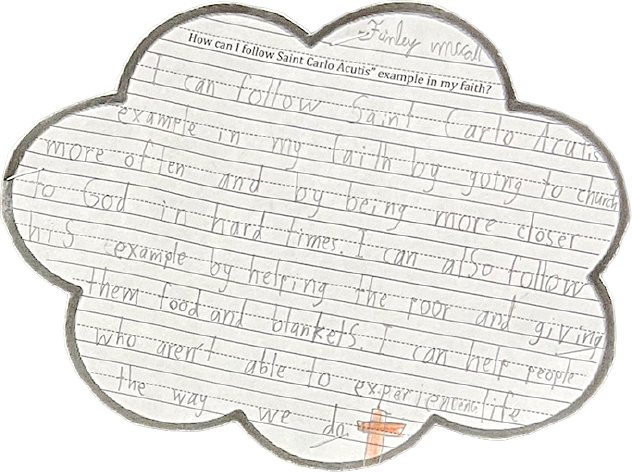 Finley mccall
How can I follow Saint Carlo Acutis" example in my faith?
I can follow Saint Carlo Acutis
example in my faith by going to church
more often and by being more closer
to God in hard times. I can also follow
his example by helping the poor and giving
them food and blankets. I can help people
who aren't able to experiencing life
the way we do.